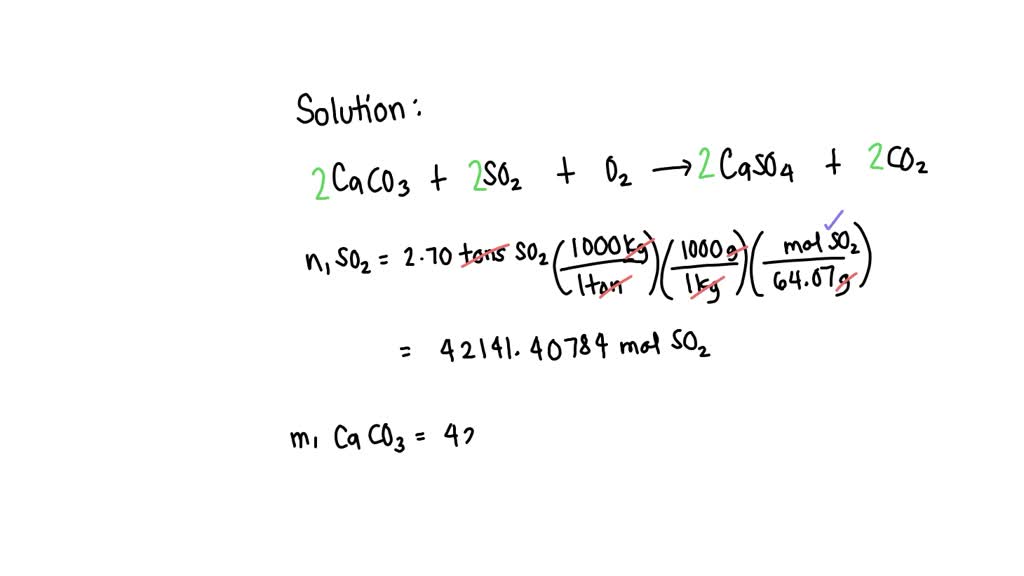 Solution:
2CaCO₃ + 2SO₂ + O₂ → 2CaSO₄ + 2CO₂
n₁ SO₂ = 2.70 tons SO₂ (1000 kg / 1 ton) (1000 g / 1 kg) (mol SO₂ / 64.07 g)
= 42141.40784 mol SO₂
m₁ CaCO₃ = 42